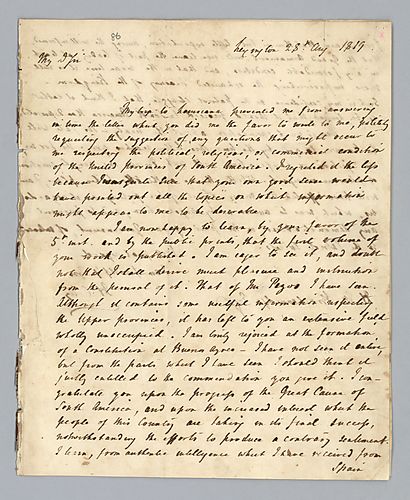 98
Lexington 28th Aug. 1819
My D Sir
My trip to Louisiana prevented me from answering
in time the letter which you did me the favor to write to me, politely
requesting the suggestion of any questions that might occur to
me respecting the political, religious, or commercial condition
of the United provinces of South America. I regretted it the less
because I was quite sure that your own good sense would
have pointed out all the topics on which information
might appear to me to be desirable.
I am now happy to learn, by your favor of the
5th inst. and by the public prints, that the first volume of
your work is published. I am eager to see it, and doubt
not that I shall derive much pleasure and instruction
from the perusal of it. That of Mr. Poyvo I have seen.
Although it contains some useful information respecting
the Upper provinces, it has left to you an extensive field
wholly unoccupied. I am truly rejoiced at the formation
of a Constitution at Buenos Ayres. I have not seen it entire,
but from the parts which I have seen I should think it
justly entitled to the commendation you give it. I con-
gratulate you upon the progress of the Great Cause of
South America, and upon the increased interest which the
people of this Country are taking in its final success,
notwithstanding the efforts to produce a contrary sentiment.
I learn, from authentic intelligence which I have received from
Spain